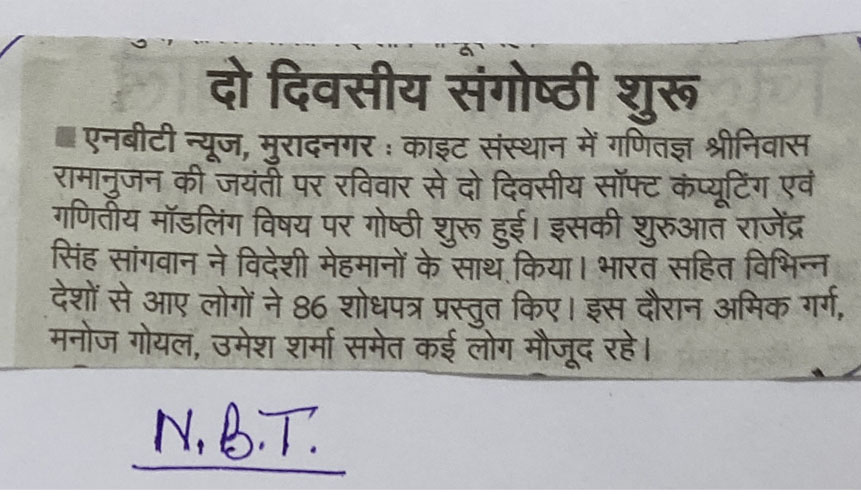 दो दिवसीय संगोष्ठी शुरू
एनबीटी न्यूज, मुरादनगर : काइट संस्थान में गणितज्ञ श्रीनिवास
रामानुजन की जयंती पर रविवार से दो दिवसीय सॉफ्ट कंप्यूटिंग एवं
गणितीय मॉडलिंग विषय पर गोष्ठी शुरू हुई। इसकी शुरुआत राजेंद्र
सिंह सांगवान ने विदेशी मेहमानों के साथ किया। भारत सहित विभिन्न
देशों से आए लोगों ने 86 शोधपत्र प्रस्तुत किए। इस दौरान अमिक गर्ग,
मनोज गोयल, उमेश शर्मा समेत कई लोग मौजूद रहे।
N.B.T.